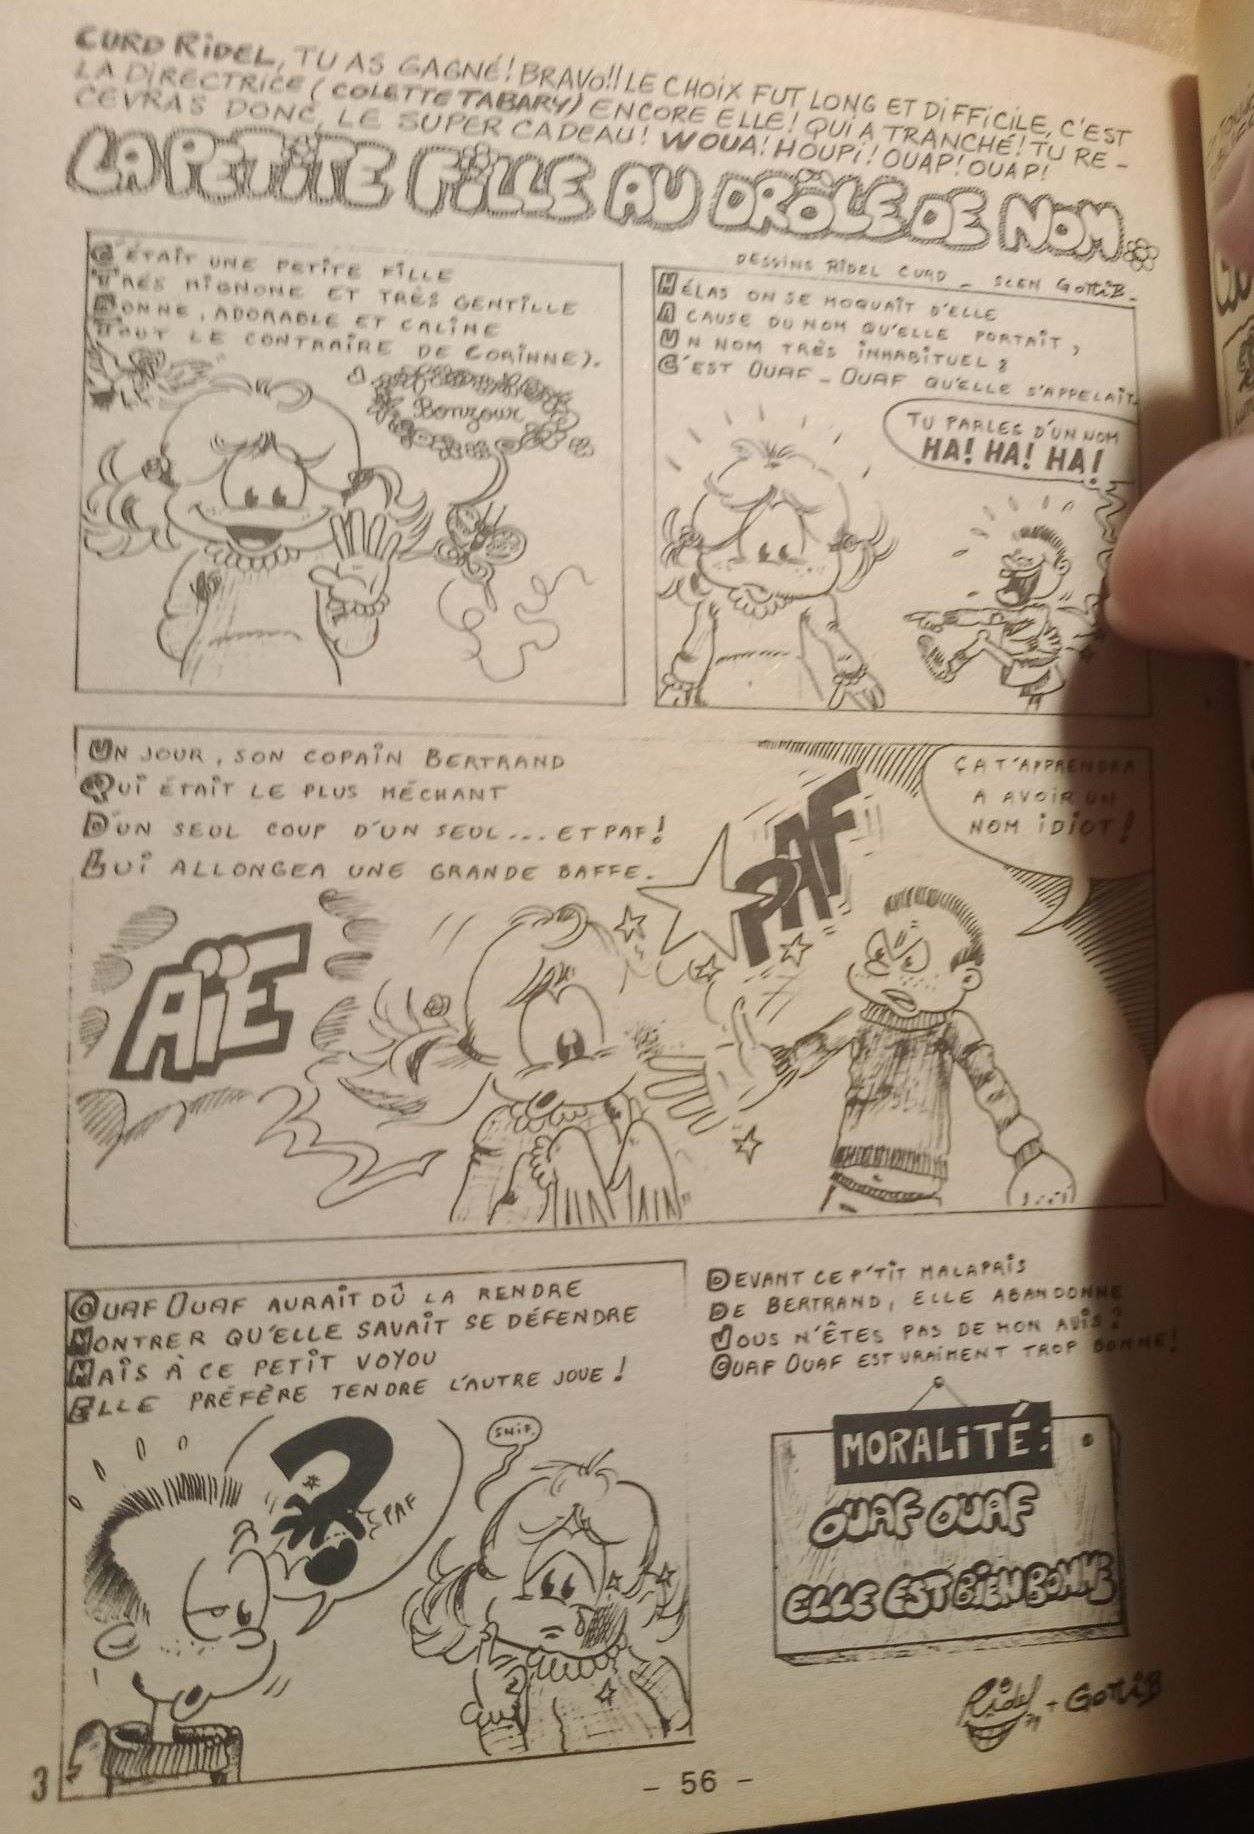 CURD RiDEL, TU AS GAGNÉ! BRAVO!! LE CHOIX FUT LONG ET DiFFiCiLE, C'EST
LA DiRECTRiCE (COLETTE TABARY) ENCORE ELLE! QUi A TRANCHÉ! TU RE-
CEVRAS DONC, LE SUPER CADEAU! WOUA! HOUPi! OUAP! OUAP!
LA PETiTE FiLLE AU DRÔLE DE NOM.
DESSiNS RiDEL CURD _ SCEN GOTLiB_
C'ÉTAiT UNE PETiTE FiLLE
TRÉS MiGNONE ET TRÈS GENTiLLE
BONNE, ADORABLE ET CALiNE
TOUT LE CONTRAiRE DE CORiNNE).
Bonzour
HÉLAS ON SE MOQUAiT D'ELLE
A CAUSE DU NOM QU'ELLE PORTAiT,
UN NOM TRÈS iNHABiTUEL:
C'EST OUAF_OUAF QU'ELLE S'APPELAiT.
TU PARLES D'UN NOM
HA! HA! HA!
UN JOUR, SON COPAiN BERTRAND
QUi ÉTAiT LE PLUS MÉCHANT
D'UN SEUL COUP D'UN SEUL... ET PAF!
LUi ALLONGEA UNE GRANDE BAFFE.
ÇA T'APPRENDRA
A AVOiR UN
NOM iDiOT!
PAF
AïE
OUAF OUAF AURAiT DÛ LA RENDRE
MONTRER QU'ELLE SAVAiT SE DÉFENDRE
MAiS À CE PETiT VOYOU
ELLE PRÉFÈRE TENDRE L'AUTRE JOUE!
?
PAF
SNiF.
DEVANT CE P'TiT MALAPRiS
DE BERTRAND, ELLE ABANDONNE
VOUS N'ÊTES PAS DE MON AViS?
OUAF OUAF EST VRAiMENT TROP BONNE!
MORALiTÉ:
OUAF OUAF
ELLE EST BiEN BONNE
Ridel 79 + GOTLiB
3
- 56 -